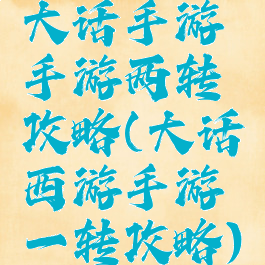 大话手游
手游两转
攻略(大话
西游手游
一转攻略)